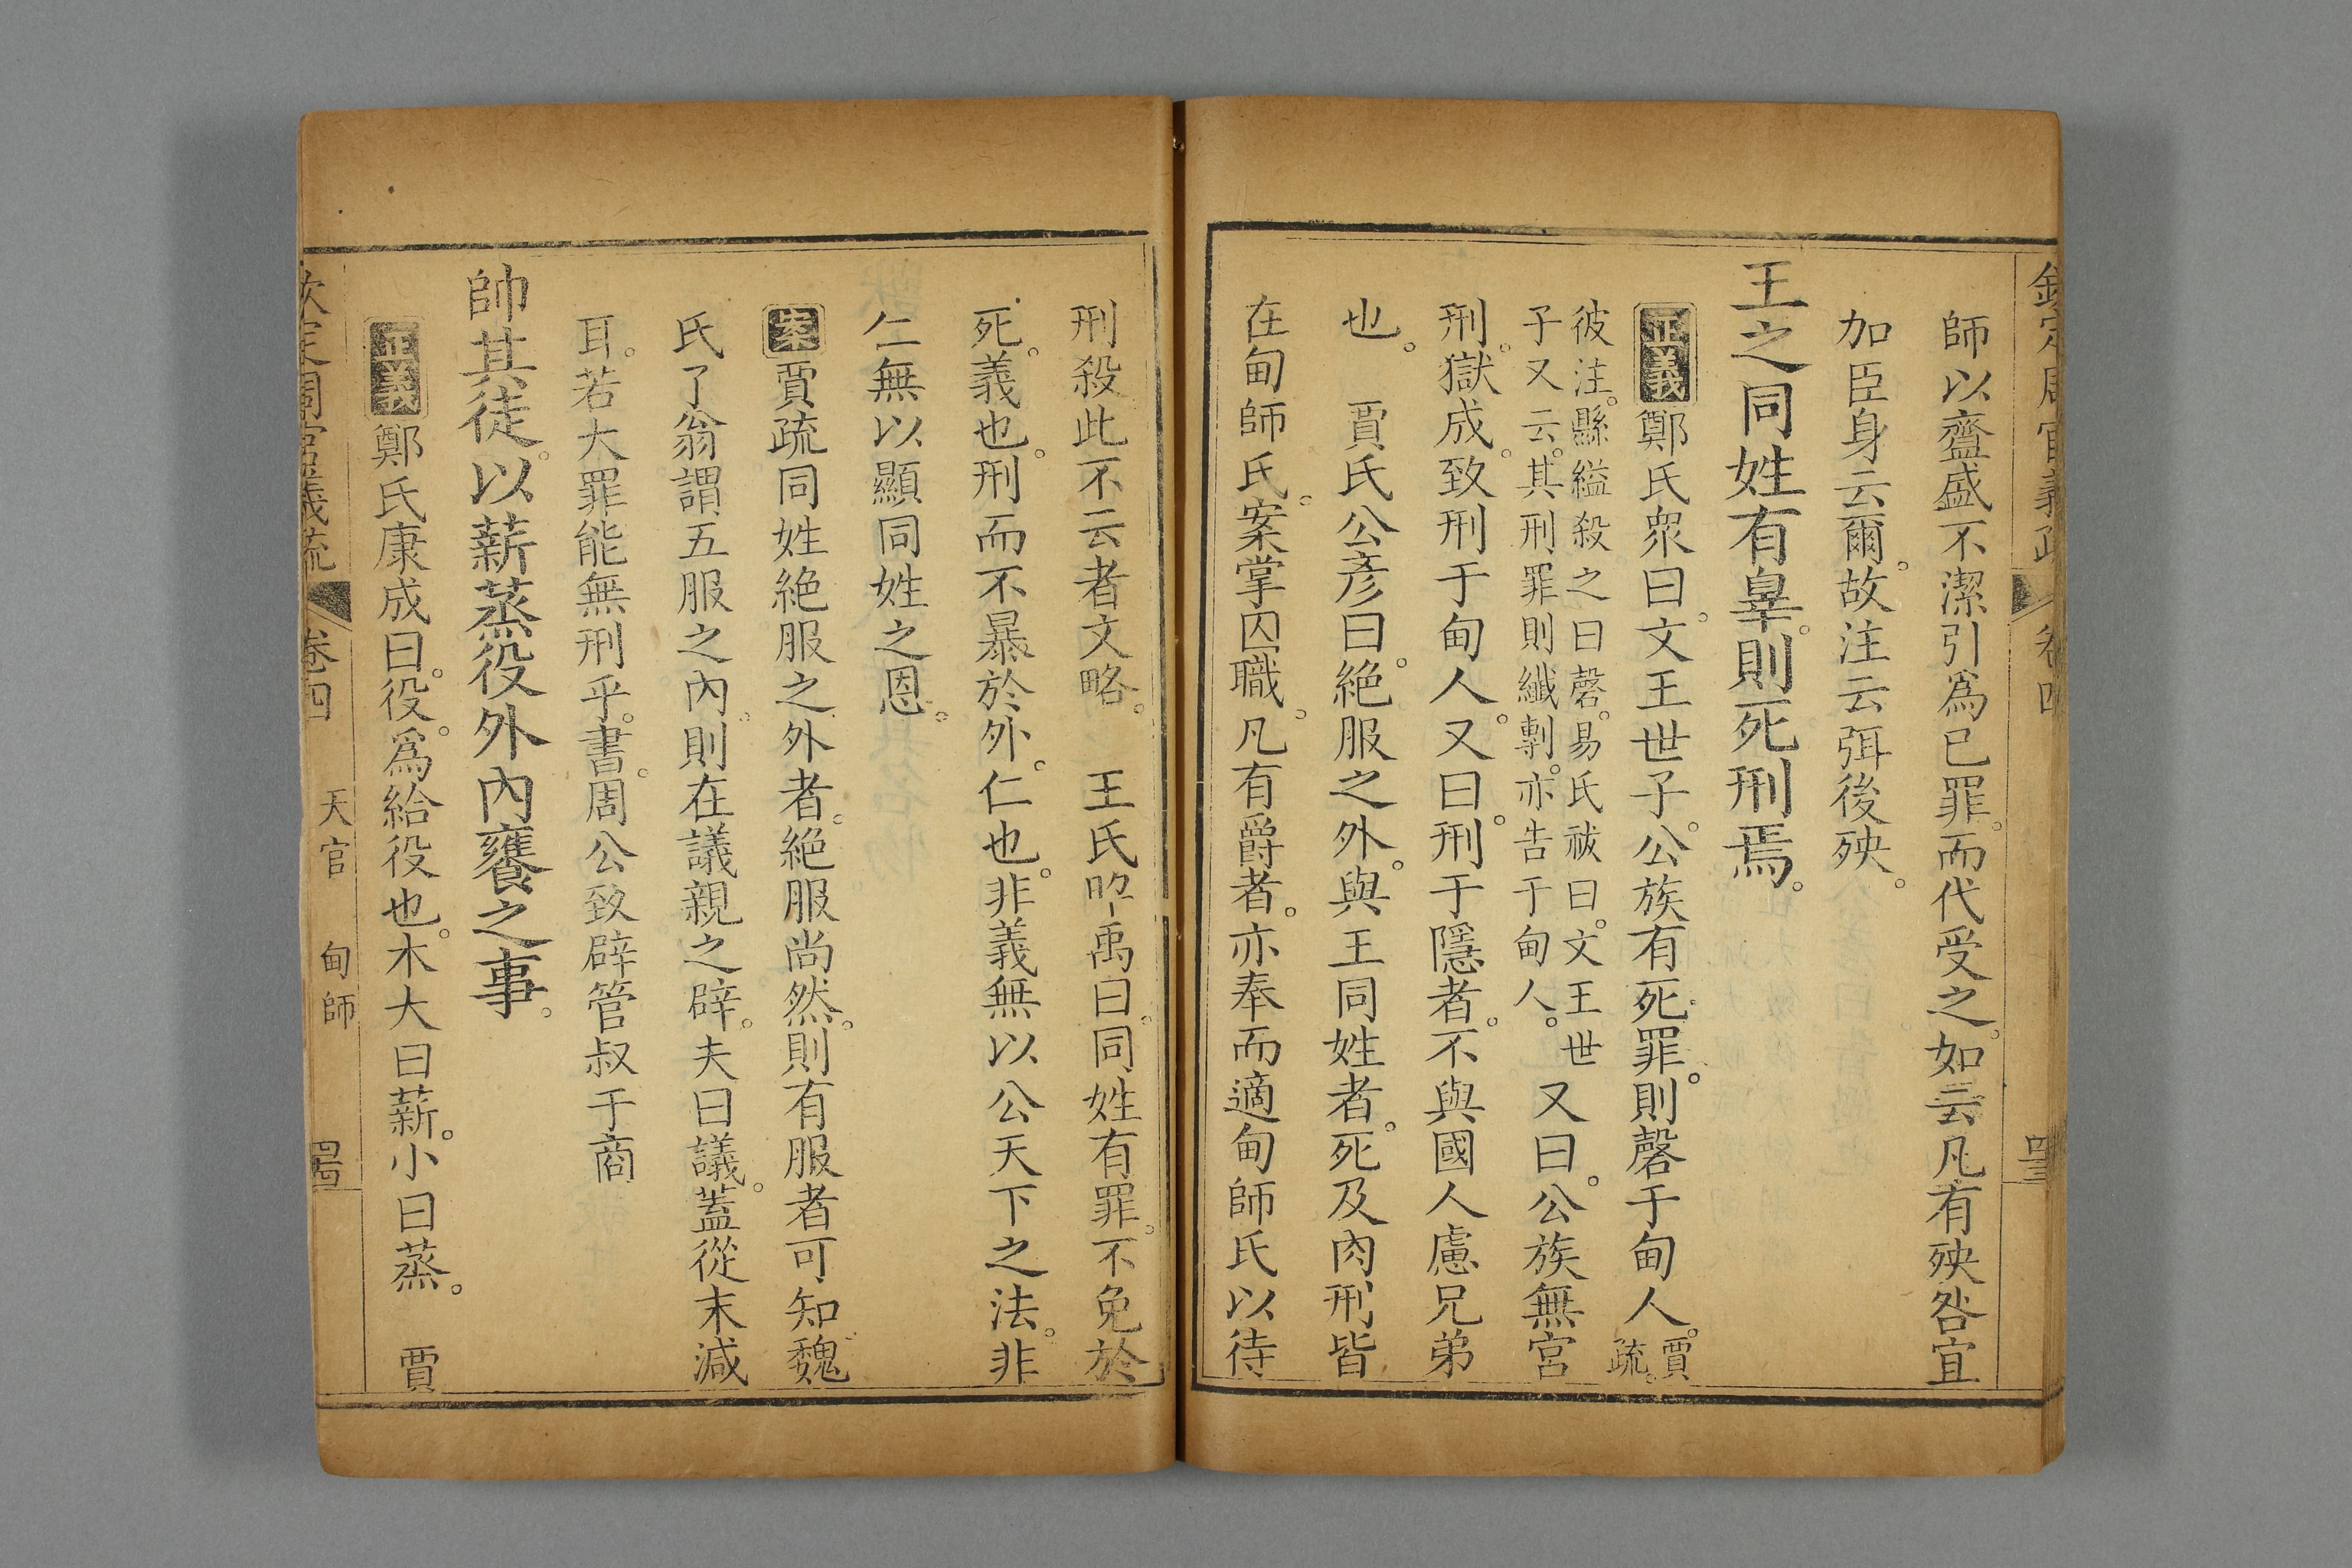 欽定周官義疏 卷四
師以齍盛不潔引爲已罪。而代受之。如云凡有殃咎宜
加臣身云爾。故注云弭後殃。
王之同姓有辠。則死刑焉。
正義 鄭氏衆曰。文王世子。公族有死罪。則磬于甸人。賈疏。
彼注。縣縊殺之曰磬。易氏祓曰。文王世
子又云。其刑罪則纖剸。亦告于甸人。 又曰。公族無宮
刑。獄成。致刑于甸人。又曰。刑于隱者。不與國人慮兄弟
也。 賈氏公彦曰。絶服之外。與王同姓者。死及肉刑皆
在甸師氏。案掌囚職。凡有爵者。亦奉而適甸師氏以待
刑殺此不云者文略。 王氏昭禹曰。同姓有罪。不免於
死。義也。刑而不暴於外。仁也。非義無以公天下之法。非
仁無以顯同姓之恩。
案 賈疏同姓絶服之外者。絶服尚然。則有服者可知魏
氏了翁謂五服之內。則在議親之辟。夫曰議。蓋從末減
耳。若大罪能無刑乎。書。周公致辟管叔于商
帥其徒。以薪蒸役外內饔之事。
正義 鄭氏康成曰。役。爲給役也。木大曰薪。小曰蒸。 賈
欽定周官義疏 卷四 天官 甸師